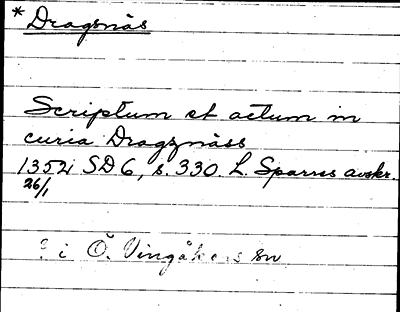 * Dragsnäs
Scriptum et actum in
curia Dragznæss
1352 26/1 SD 6, s. 330. L. Sparres avskr.
? i Ö. Vingåkers sn